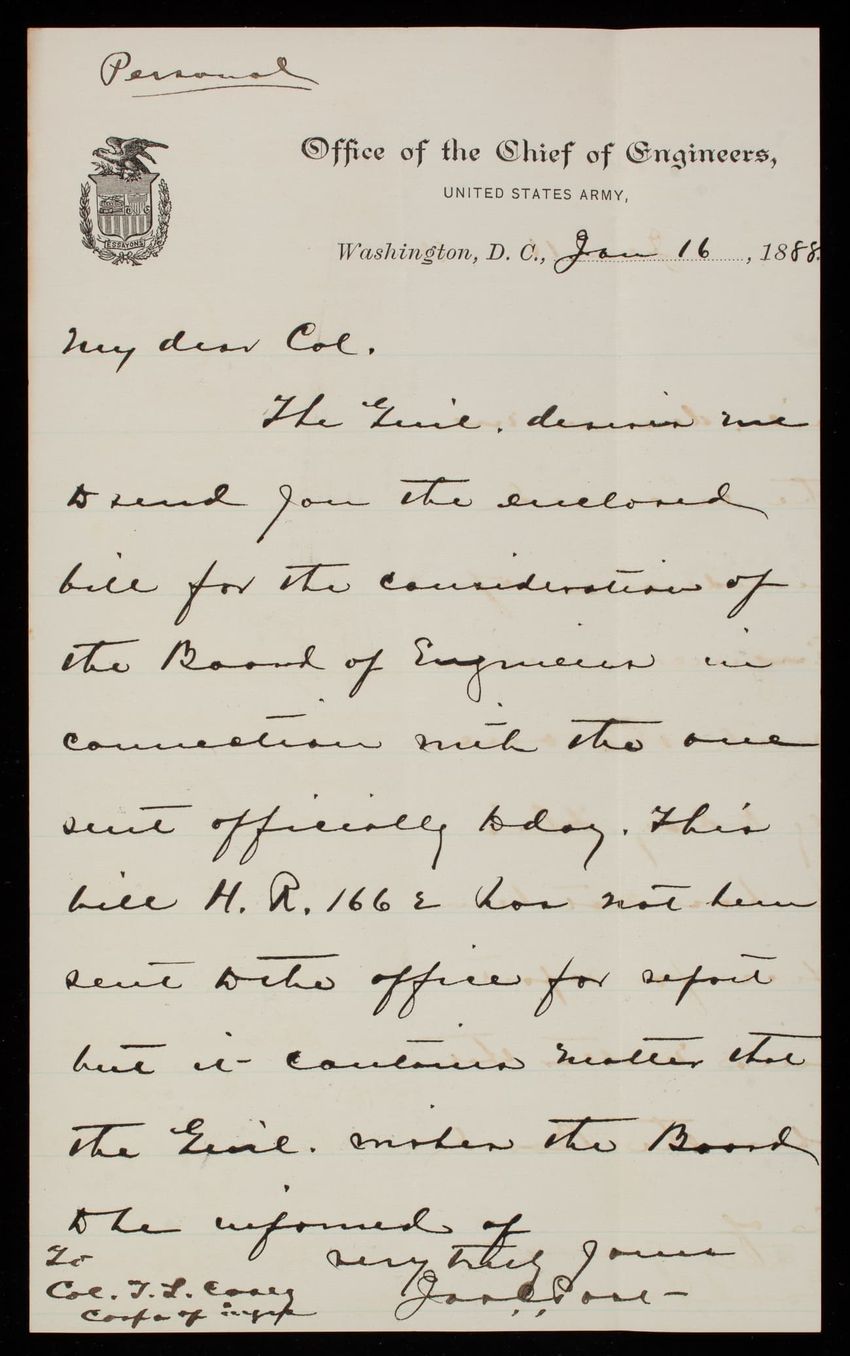 Personal
Office of the Chief of Engineers,
UNITED STATES ARMY,
ESSAYONS
Washington, D. C., Jan 16, 1888.
My dear Col.
The Genl. desires me
to send you the enclosed
bill for the consideration of
the Board of Engineers in
connection with the one
sent officially today. This
bill H. R. 1662 has not been
sent to the office for report
but it contains matter that
the Genl. wishes the Board
to be informed of
very truly yours
Jas. C. Post
To
Col. T. L. Casey
Corps of Engrs